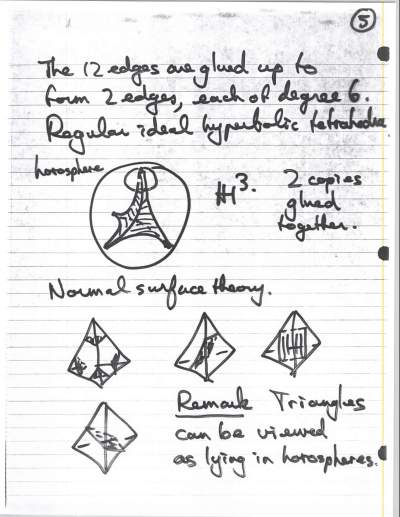 5
The 12 edges are glued up to
form 2 edges, each of degree 6.
Regular ideal hyperbolic tetrahedra
horosphere
ℍ³.
2 copies
glued
together.
Normal surface theory.
Remark Triangles
can be viewed
as lying in horospheres.